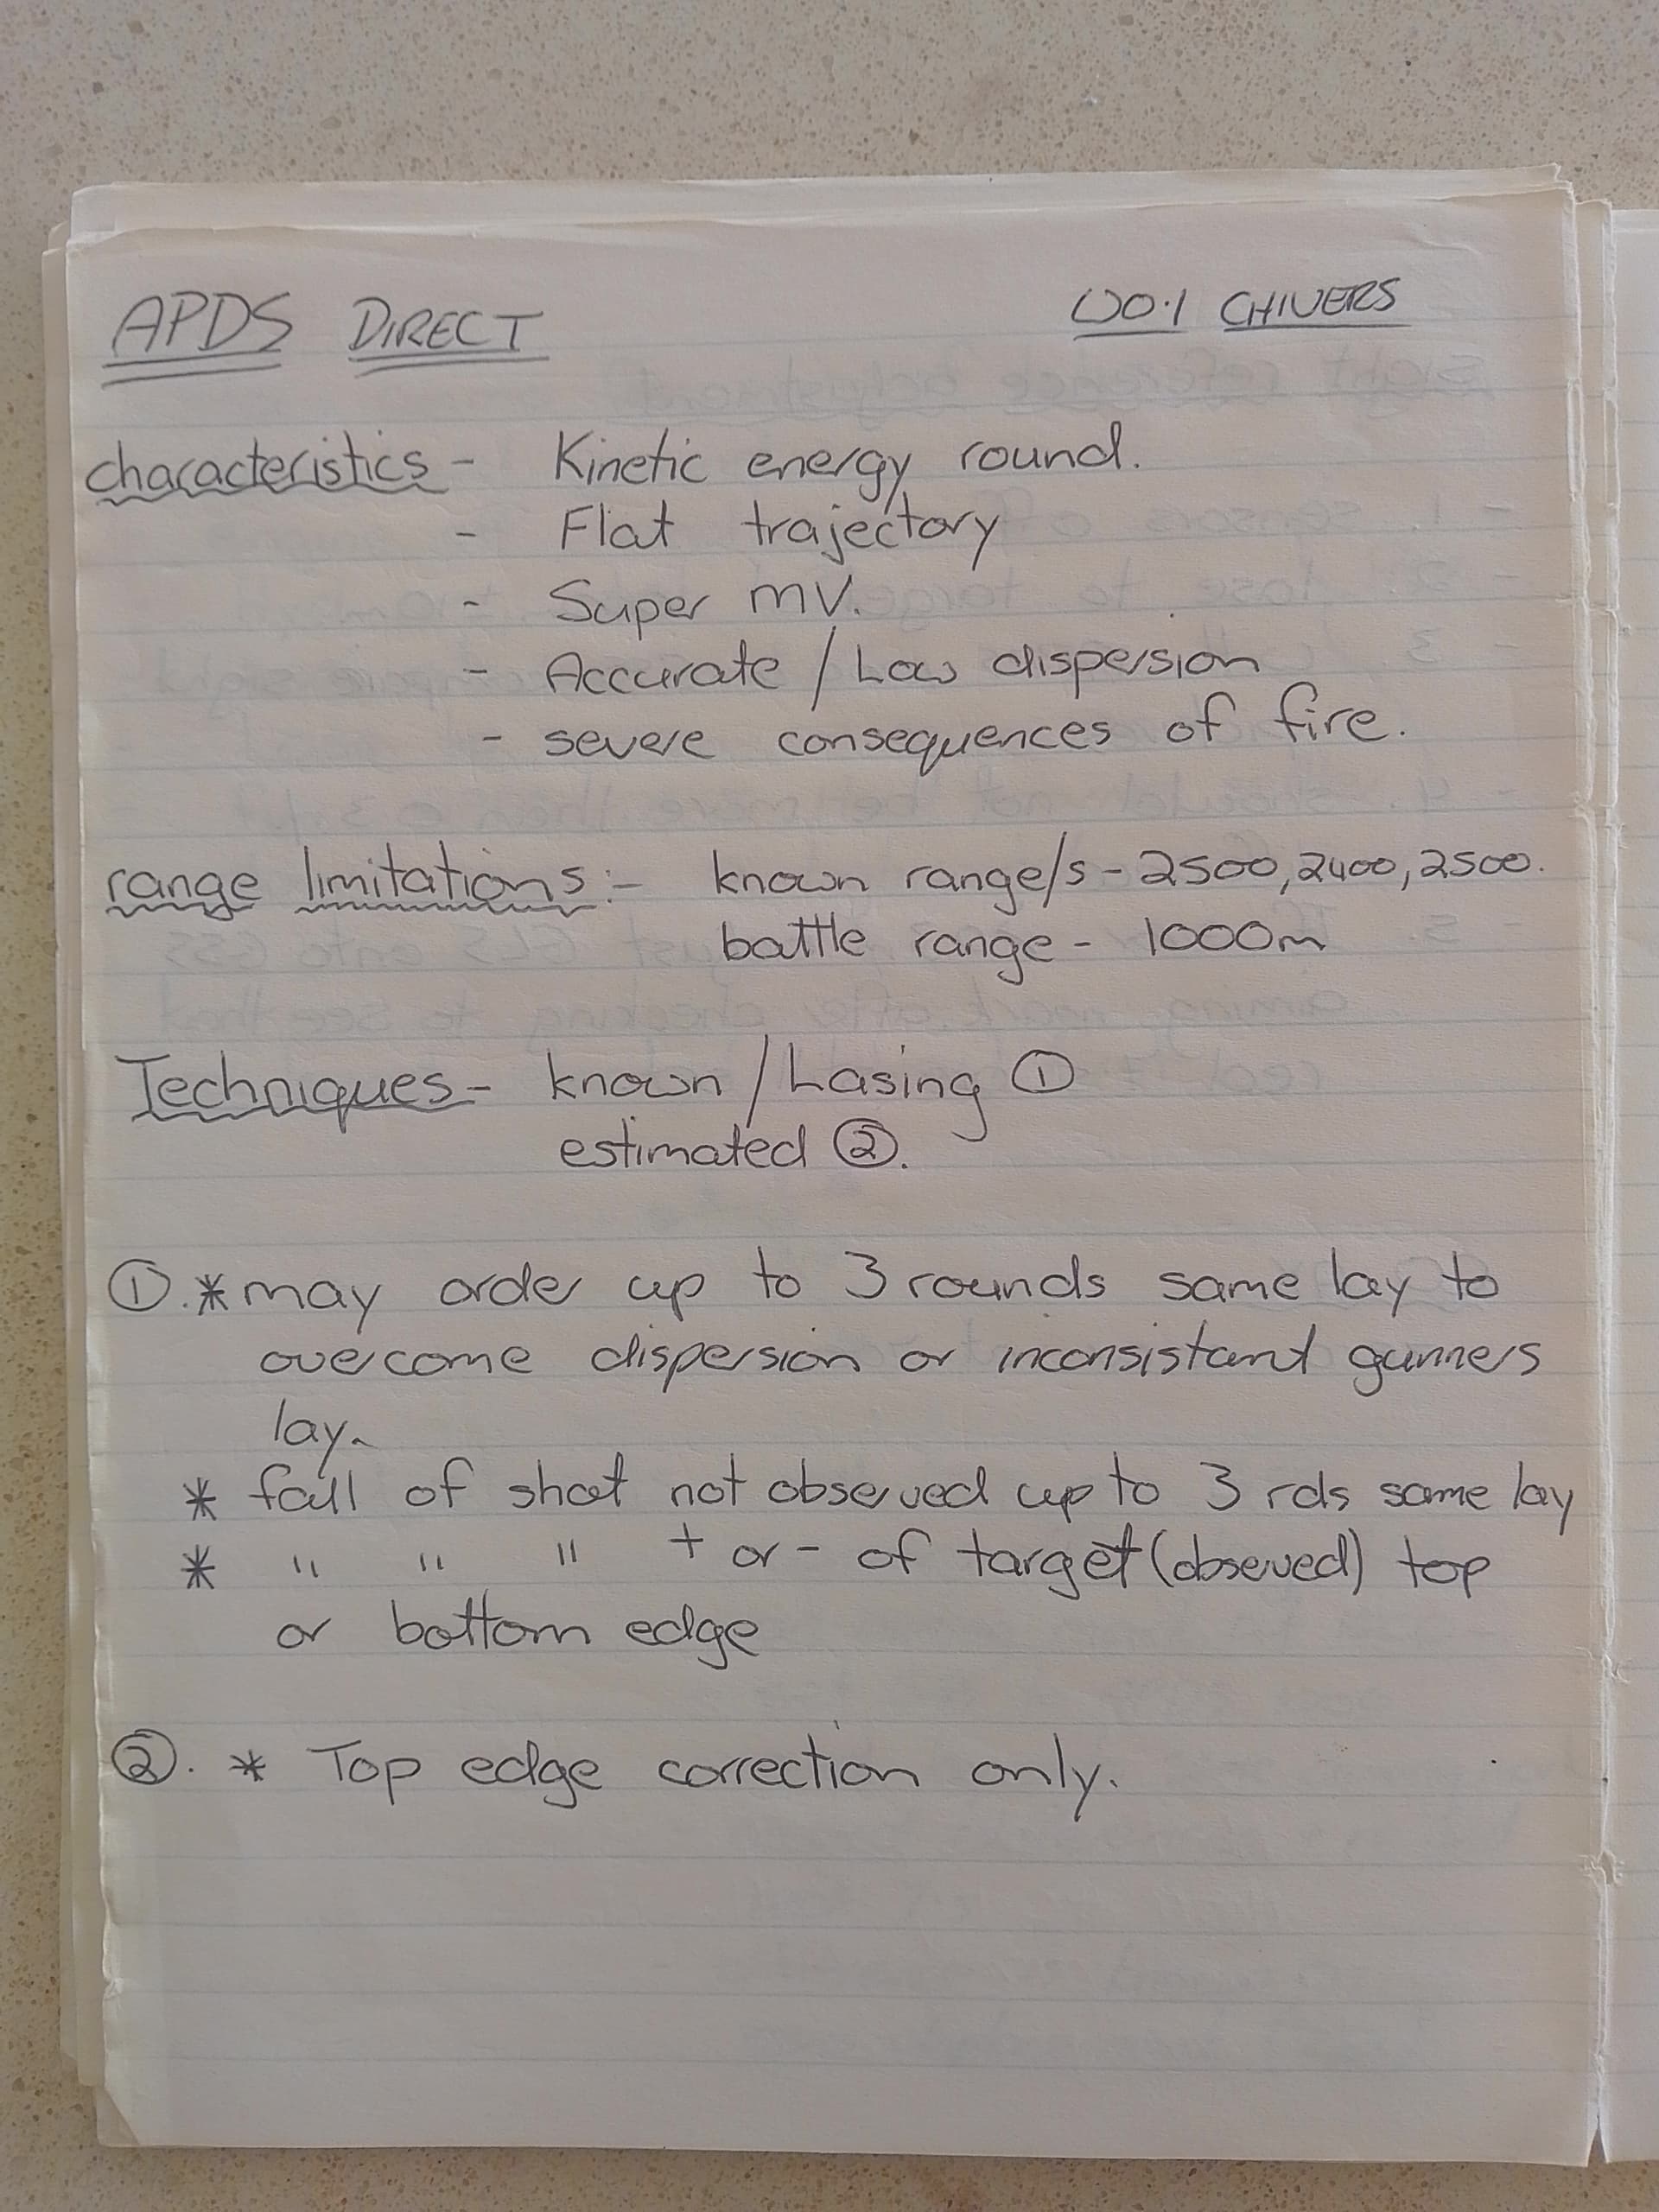 APDS DIRECT WO.1 CHIVERS
characteristics - Kinetic energy round.
- Flat trajectory
- Super MV.
- Accurate / Low dispersion
- severe consequences of fire.
range limitations:- known range/s - 2500, 2400, 2500.
battle range - 1000m
Techniques - known / Lasing ①
estimated ②.
①. * may order up to 3 rounds same lay to
overcome dispersion or inconsistant gunners
lay.
* fall of shot not observed up to 3 rds same lay
* " " " + or - of target (obseved) top
or bottom edge
②. * Top edge correction only.